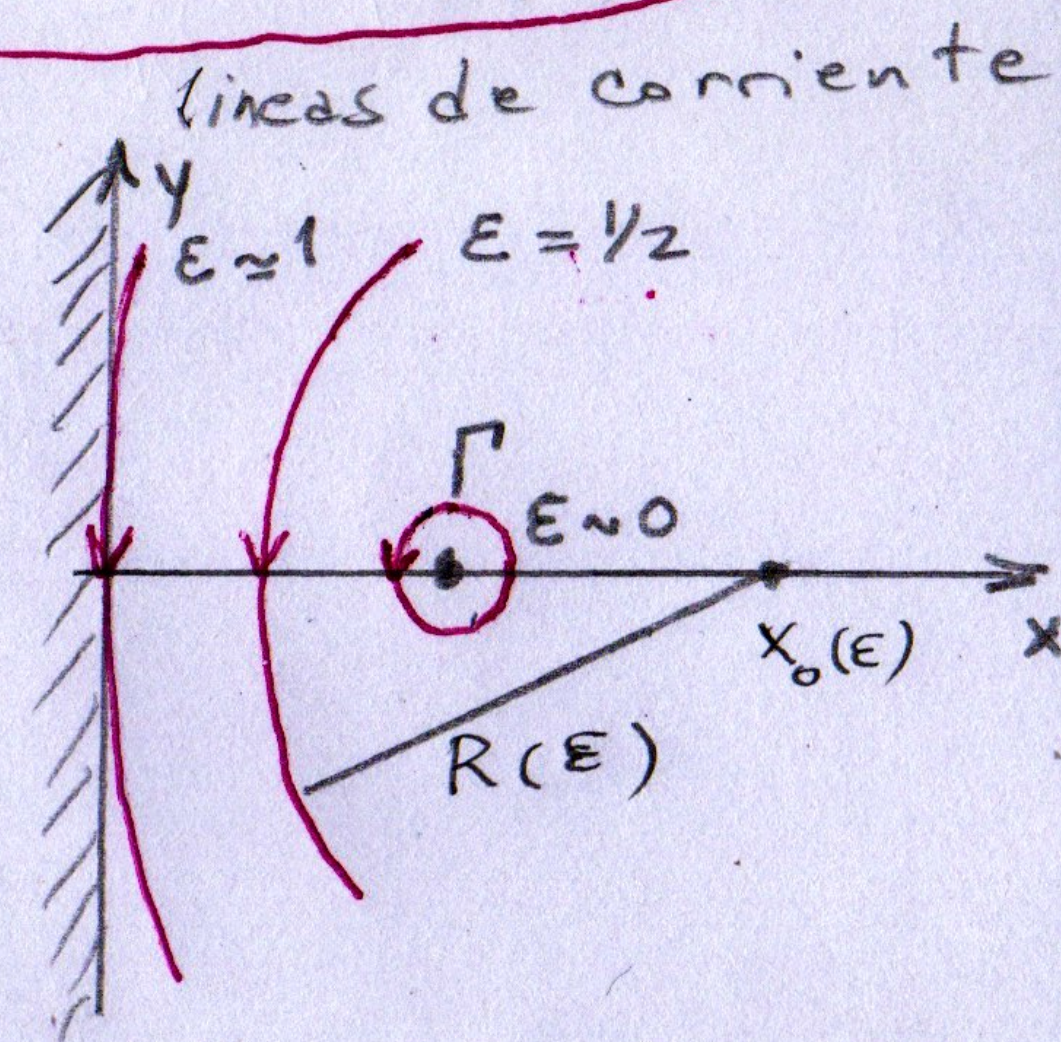 lineas de corriente
y
ε ≃ 1
ε = 1/2
Γ
ε ~ 0
X₀(ε)
x
R(ε)